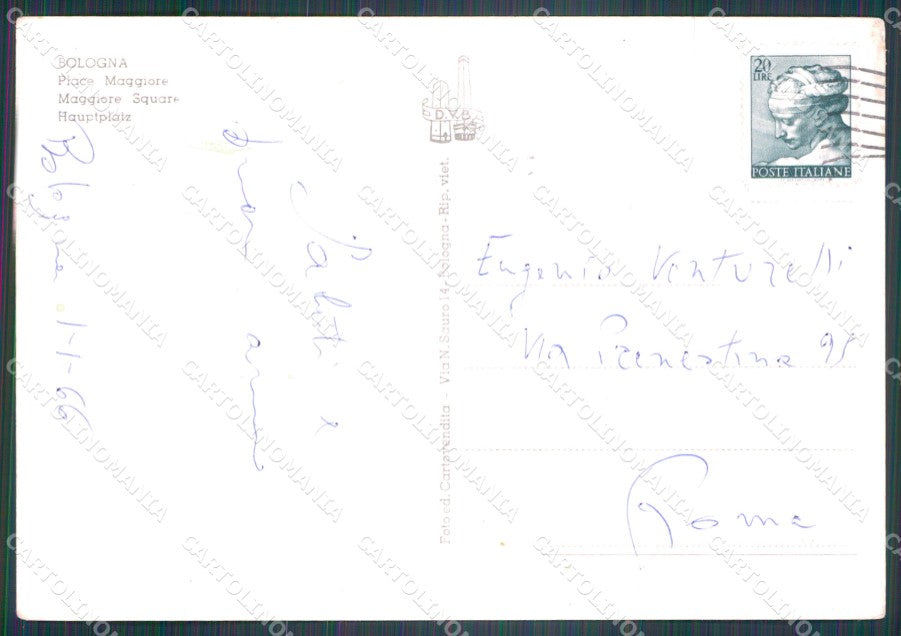 BOLOGNA
Place Maggiore
Maggiore Square
Hauptplatz
Bologna 1-1-66
Saluti x
D.V.B.
Foto ed. Cartovendita - Via N. Sauro 14, Bologna - Rip. viet.
20
LIRE
POSTE ITALIANE
Eugenio Venturelli
Via Prenestina 95
Roma
CARTOLINOMANIA